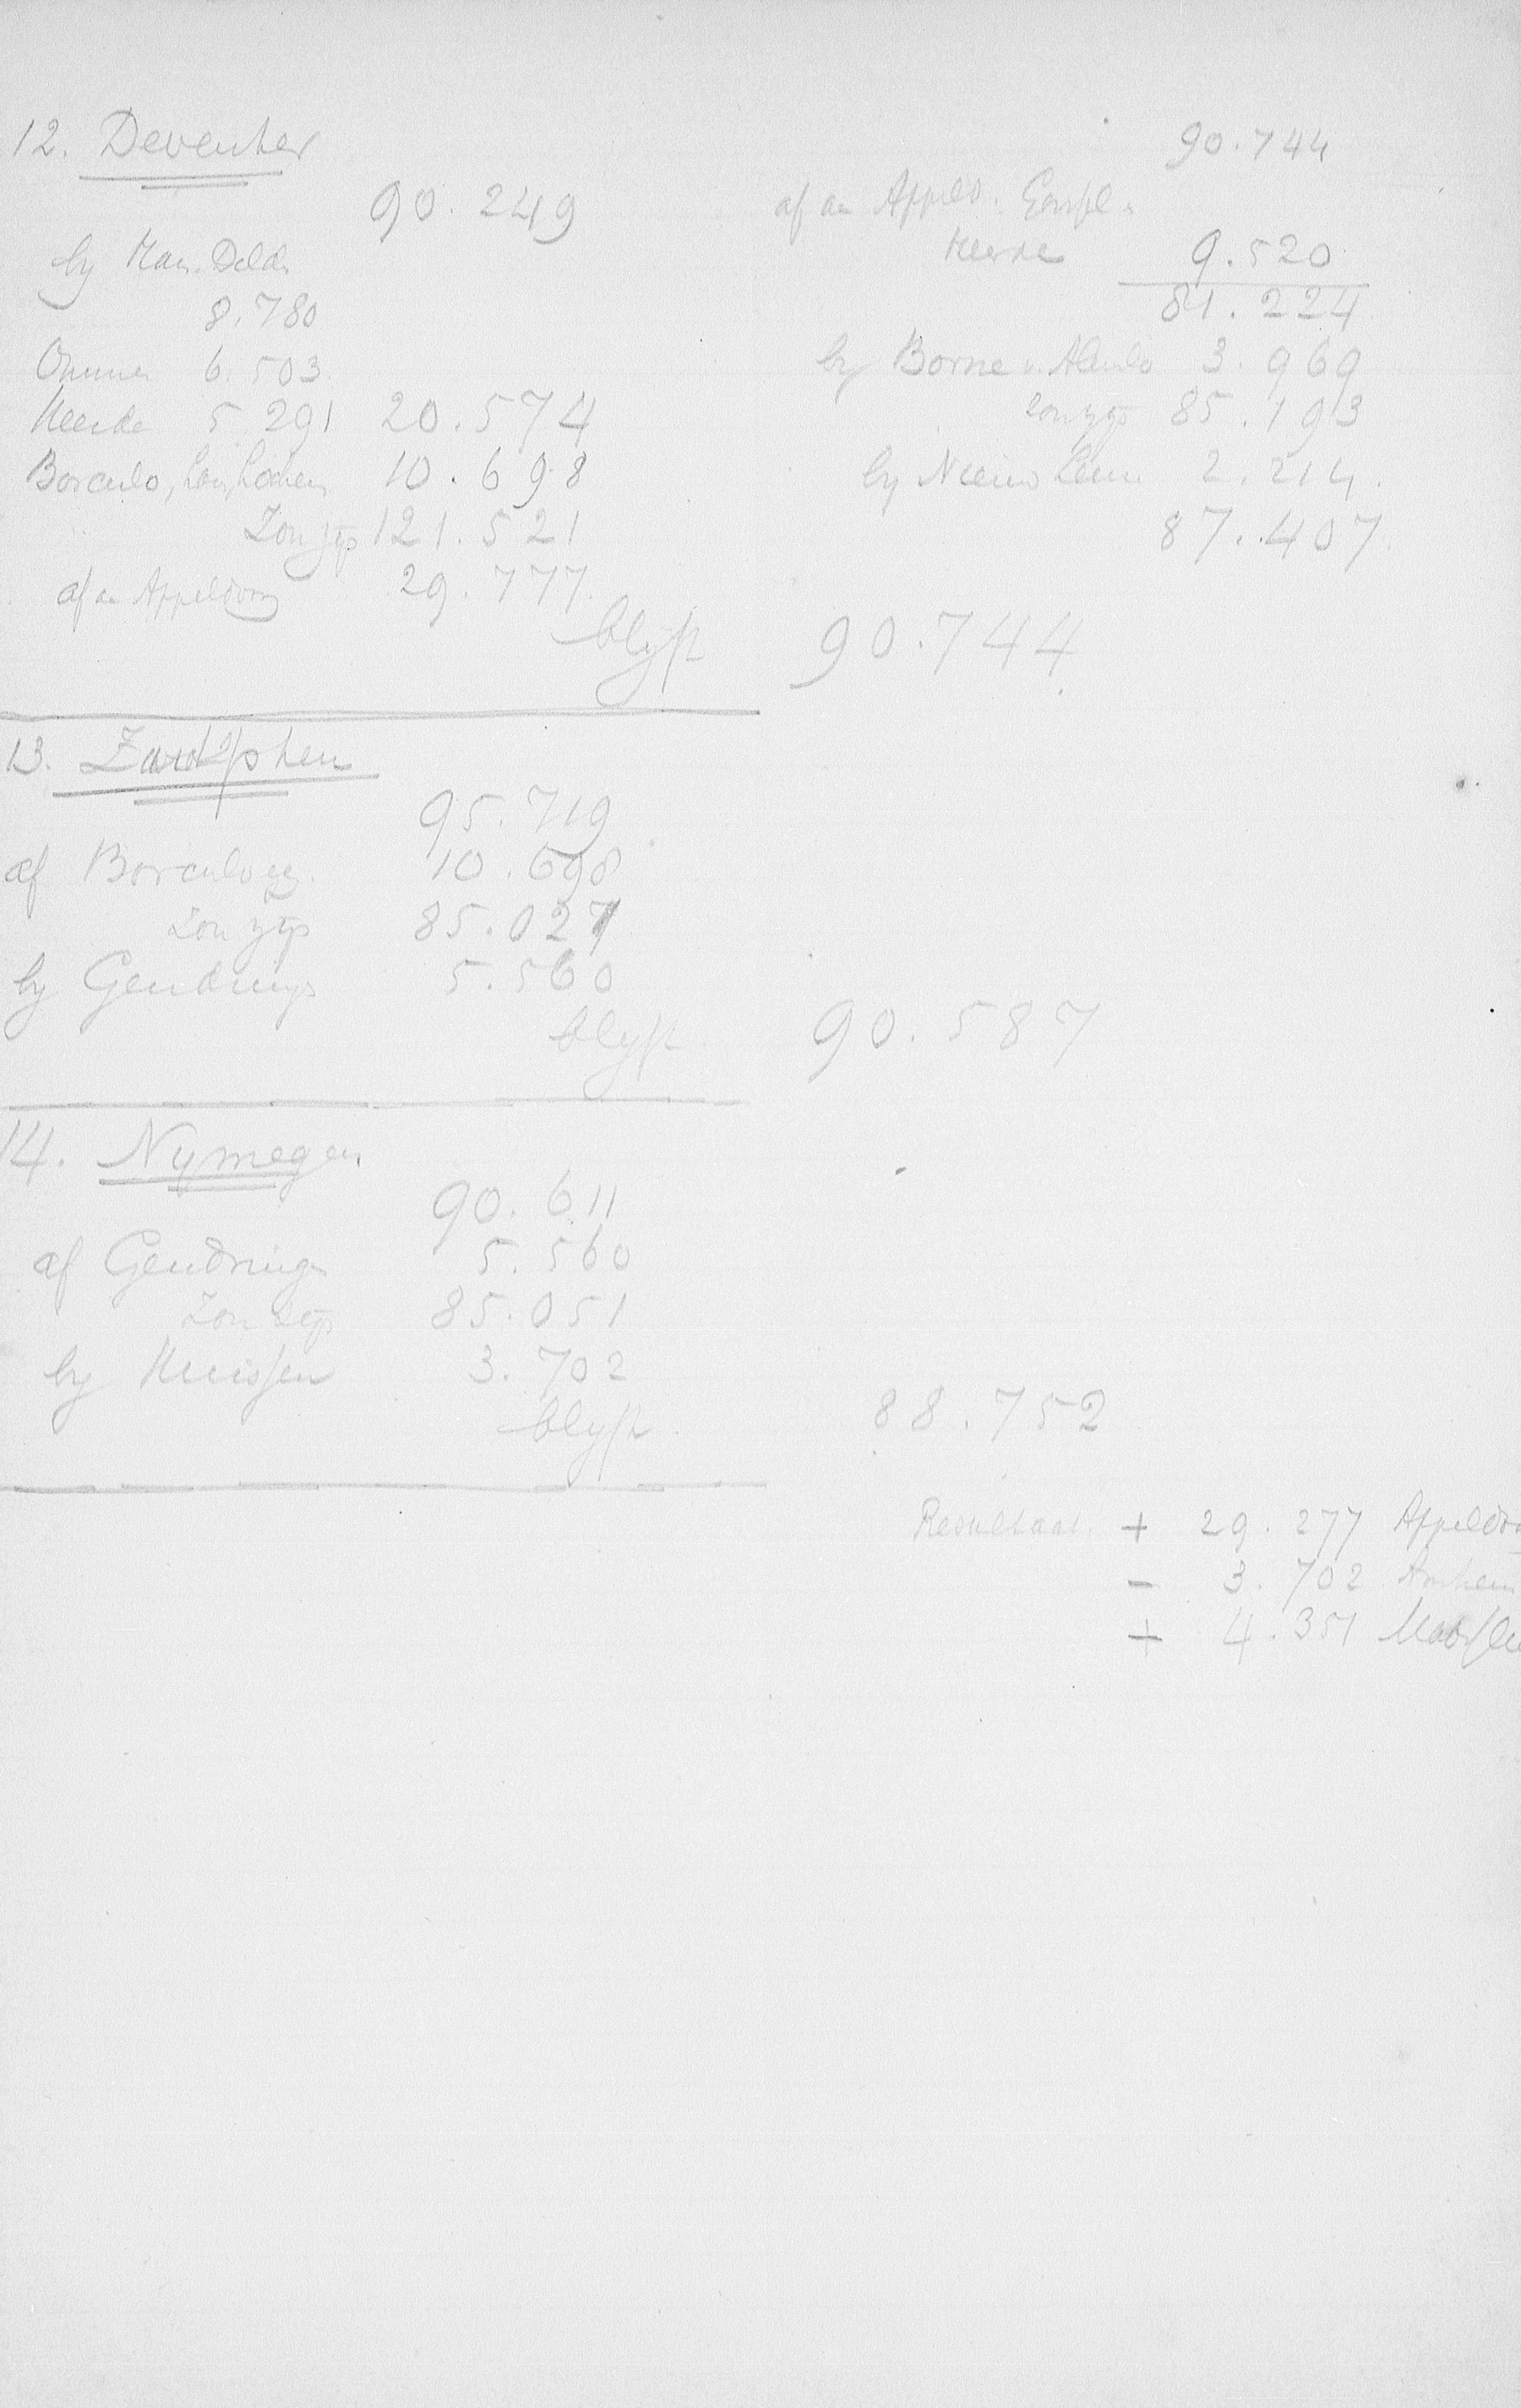 12. Deventer
90.249
by Ham. Delds
8.780
Ommen 6.503
Heerde 5.291 20.574
Borculo, Lar, Lochem 10.698
Zou zyn 121.521
af an Appeldoorn 29.777
blyft 90.744
90.744
af an Appeld.
Heerde 9.520
81.224
by Borne Almelo 3.969
zou zyn 85.193
by Nieuw Leuse 2.214.
87.407
13. Zutphen
95.719
af Borculo 10.698
Zou zyn 85.027
by Gendringen 5.560
blyft 90.587
14. Nymegen
90.611
af Gendringen 5.560
Zou zyn 85.051
by Huissen 3.702
blyft 88.752
Resultaat. + 29.277 Appeldoor
- 3.702 Arnhem
+ 4.351